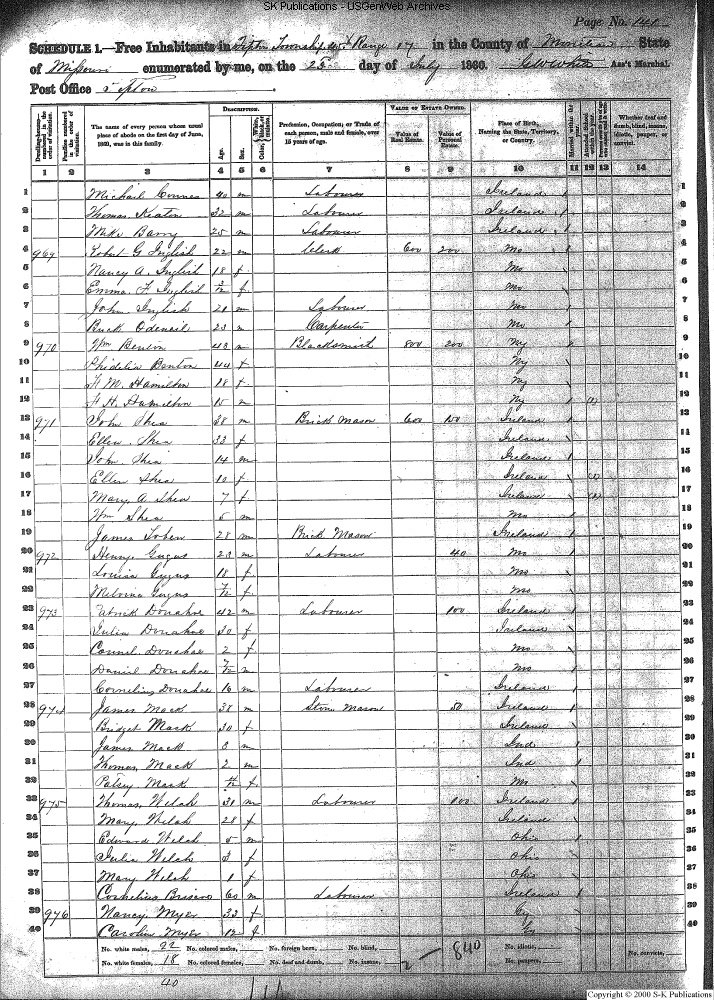 SK Publications - USGenWeb Archives
Page No. 141
SCHEDULE 1.—Free Inhabitants in Tipton Township 45 Range 17 in the County of Moniteau State
of Missouri enumerated by me, on the 25 day of July 1860. Ass't Marshal.
Post Office Tipton
DESCRIPTION. VALUE OF ESTATE OWNED.
Dwelling-houses—numbered in the order of visitation. Families numbered in the order of visitation. The name of every person whose usual place of abode on the first day of June, 1860, was in this family. Age. Sex. Color, Profession, Occupation, or Trade of each person, male and female, over 15 years of age. Value of Real Estate. Value of Personal Estate. Place of Birth, Naming the State, Territory, or Country. Married within the year. Whether deaf and dumb, blind, insane, idiotic, pauper, or convict.
1 2 3 4 5 6 7 8 9 10 11 12 13 14
1 Michael Connor 40 m Labourer Ireland / 1
2 Thomas Keaton 32 m Labourer Ireland / 2
3 Mike Barry 25 m Labourer Ireland / 3
4 969 Robert G Inglish 22 m Clerk 600 200 Mo 4
5 Nancy A. Inglish 18 f Mo 5
6 Emma F Inglish 3/12 f Mo 6
7 John Inglish 20 m Labourer Mo 7
8 Buck Odeneil 23 m Carpenter Mo 8
9 970 Wm Benton 48 m Blacksmith 800 200 Ny 9
10 Phidelia Benton 44 f Ny 10
11 F. M. Hamilton 18 f Ny 11
12 F. H. Hamilton 15 m Ny (1) 12
13 971 John Shea 38 m Brick Mason 600 150 Ireland 13
14 Ellen Shea 33 f Ireland 14
15 John Shea 14 m Ireland 15
16 Ellen Shea 10 f Ireland (1) 16
17 Mary A Shea 7 f Ireland (1) 17
18 Wm Shea 5 m Mo 18
19 James Tobin 28 m Brick Mason Ireland 19
20 972 Henry Gugus 23 m Labourer 40 Mo 20
21 Louisa Gugus 18 f Mo 21
22 Melvina Gugus 7/12 f Mo 22
23 973 Patrick Donahoe 42 m Labourer 100 Ireland 23
24 Julia Donahoe 30 f Ireland 24
25 Connel Donahoe 2 f Mo 25
26 Daniel Donahoe 7/12 m Mo 26
27 Cornelius Donahoe 16 m Labourer Ireland 27
28 974 James Mack 38 m Stone Mason 50 Ireland 28
29 Bridget Mack 30 f Ireland 29
30 James Mack 3 m Ind 30
31 Thomas Mack 2 m Ind 31
32 Patsy Mack f Mo 32
33 975 Thomas Welch 31 m Labourer 100 Ireland 33
34 Mary Welch 28 f Ireland 34
35 Edward Welch 5 m Ohio 35
36 Julia Welch 3 f Ohio 36
37 Mary Welch 1 f Ohio 37
38 Cornelius 60 m Labourer Ireland 38
39 976 Nancy Myer 33 f Ky 39
40 Caroline Myer 12 f 40
No. white males, 22 No. colored males, No. foreign born, No. blind, No. idiotic,
No. white females, 18 No. colored females, No. deaf and dumb, No. insane, 840 No. paupers, No. convicts,
40
Copyright © 2000 S-K Publications